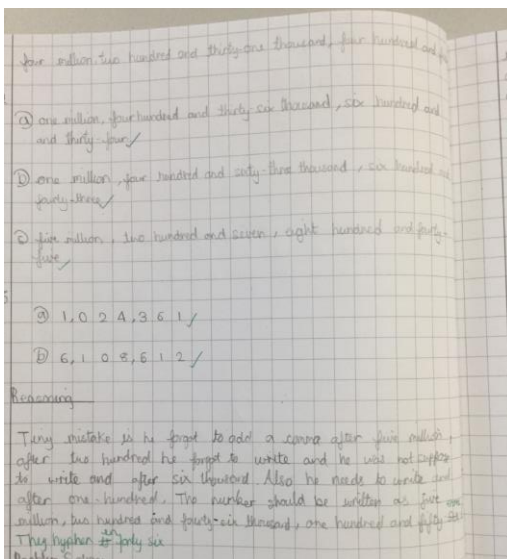 four million, two hundred and thirty-one thousand, four hundred and
a one million, four hundred and thirty six thousand, six hundred and
and thirty-four
b one million, four hundred and sixty-three thousand, six hundred
fourty-three
c five million, two hundred and seven, eight hundred and fourty-
five
a 1,0 2 4,3 6 1
b 6,1 0 8,6 1 2
Reasoning
Tiny mistake is he forgot to add a comma after five million,
after two hundred he forgot to write and he was not suppose
to write and after six thousand. Also he needs to write and
after one-hundred. The number should be written as five
million, two hundred and fourty-six thousand, one hundred and fifty
They hyphen forty six